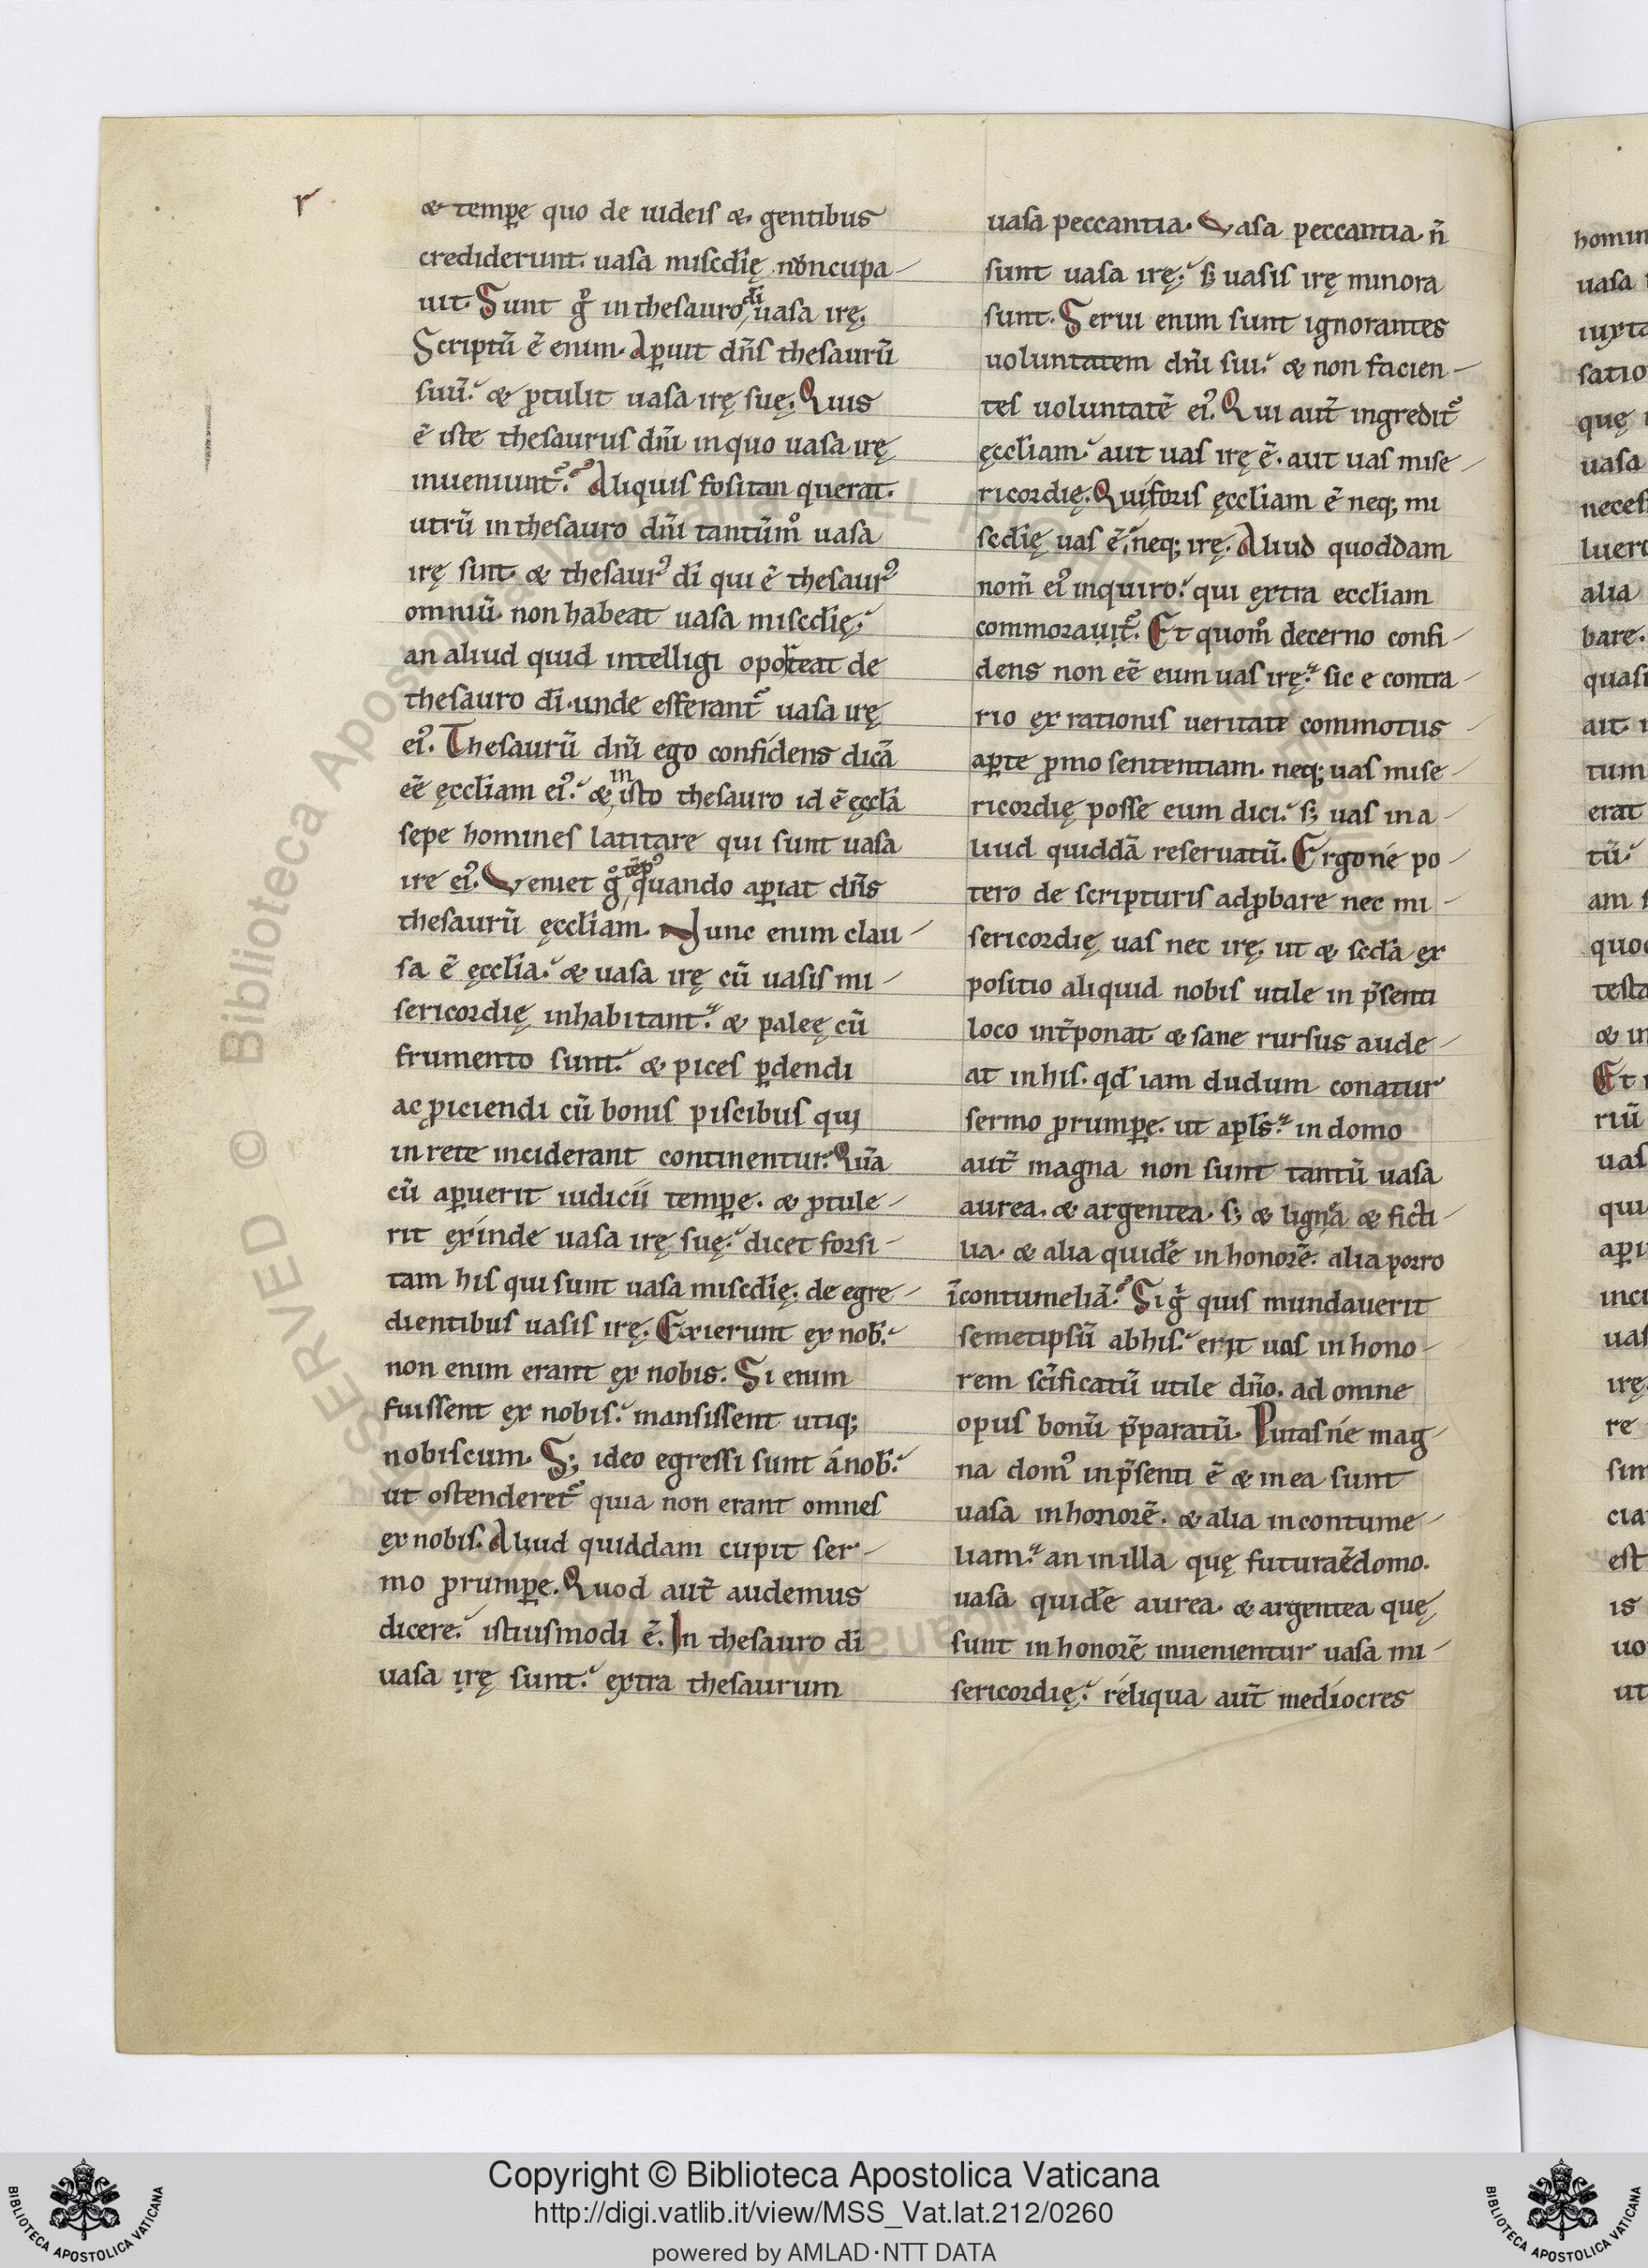 r
⁊ temꝑe quo de iudeis ⁊ gentibus
crediderunt. uasa misc̄dīę noncupa-
uit. Sunt gͦ in thesauro dī uasa irę.
Scriptū ē enim. Aꝑuit dn̄s thesaurū
suū. ⁊ ꝓtulit uasa irę suę. Quis
ē iste thesaurus dn̄i in quo uasa irę
inueniunt᷑. Aliquis fositan querat.
utrū in thesauro dn̄i tantūmͦ uasa
irę sint. ⁊ thesaurꝰ dī qui ē thesaurꝰ
omniū. non habeat uasa misc̄dīę.
an aliud quid intelligi oporteat de
thesauro dī. unde efferant᷑ uasa irę
eiꝰ. Thesaurū dn̄i ego confidens dicā
eē ęccl̄iam eiꝰ. ⁊ in isto thesauro id ē ęccl̄a
sepe homines latitare qui sunt uasa
ire eiꝰ. Veniet gͦ tēpꝰ quando aꝑiat dn̄s
thesaurū ęccl̄iam. Nunc enim clau-
sa ē ęccl̄ia. ⁊ uasa irę cū uasis mi-
sericordię inhabitant. ⁊ paleę cū
frumento sunt. ⁊ pices ꝑdendi
ac ꝓiciendi cū bonis piscibus qui
in rete inciderant continentur. Quā
cū aꝑuerit iudicii temꝑe. ⁊ ꝓtule-
rit exinde uasa irę suę. dicet forsi-
tam his qui sunt uasa misc̄dīę. de egre-
dientibus uasis irę. Exierunt ex nob̄.
non enim erant ex nobis. Si enim
fuissent ex nobis. mansissent utiqꝫ
nobiscum. Sꝫ ideo egressi sunt á nob̄.
ut ostenderet᷑ quia non erant omnes
ex nobis. Aliud quiddam cupit ser-
mo ꝓrumꝑe. Quod aut̄ audemus
dicere. istiusmodi ē. In thesauro dī
uasa irę sunt. extra thesaurum
uasa peccantia. Vasa peccantia n̄
sunt uasa irę. sꝫ uasis irę minora
sunt. Serui enim sunt ignorantes
uoluntatem dn̄i sui. ⁊ non facien-
tes uoluntatē eiꝰ. Qui aut̄ ingredit᷑
ęccl̄iam. aut uas irę ē. aut uas mise-
ricordię. Qui foris ęccl̄iam ē neqꝫ mi
sc̄dīę uas ē, neqꝫ irę. Aliud quoddam
nom̄ eiꝰ inquiro. qui extra eccl̄iam
commorauit᷑. Et quomͦ decerno confi-
dens non eē eum uas irę. sic e contra-
rio ex rationis ueritate commotus
aꝑte ꝓmo sententiam. neqꝫ uas mise-
ricordię posse eum dici. sꝫ uas in a-
liud quiddā reseruatū. Ergone po-
tero de scripturis adꝓbare nec mi-
sericordię uas nec irę. ut ⁊ sc̄da ex
positio aliquid nobis utile in p̄senti
loco int̄ponat ⁊ sane rursus aude-
at in his. qd̄ iam dudum conatur
sermo ꝓrumꝑe. ut apl̄s. in domo
aut̄ magna non sunt tantū uasa
aurea. ⁊ argentea. sꝫ ⁊ lignea ⁊ ficti-
lia. ⁊ alia quidē in honorē. alia porro
ī contumeliā. Si gͦ quis mundauerit
semetipsū ab his. erit uas in hono-
rem sc̄ificatū utile dn̄o. ad omne
opus bonū p̄paratū. Putasne mag-
na domꝰ in p̄senti ē ⁊ in ea sunt
uasa in honorē. ⁊ alia in contume-
liam. an in illa quę futura ē domo.
uasa quidē aurea. ⁊ argentea quę
sunt in honorē inuenientur uasa mi-
sericordię. reliqua aut̄ mediocres
homin
uasa
iuxta
satio
quę
uasa
necess
luer
alia
bare.
quasi
ait
tum
erat
tū.
am
quod
testa
⁊ in
Et
riū
uas
qui
aꝑi
inci
uas
irę
re
sim
cia
est
is
uo
ut
Biblioteca Apostolica Vaticana
Copyright © Biblioteca Apostolica Vaticana
http://digi.vatlib.it/view/MSS_Vat.lat.212/0260
powered by AMLAD·NTT DATA
BIBLIOTECA APOSTOLICA VATICANA
BIBLIOTECA APOSTOLICA VATICANA